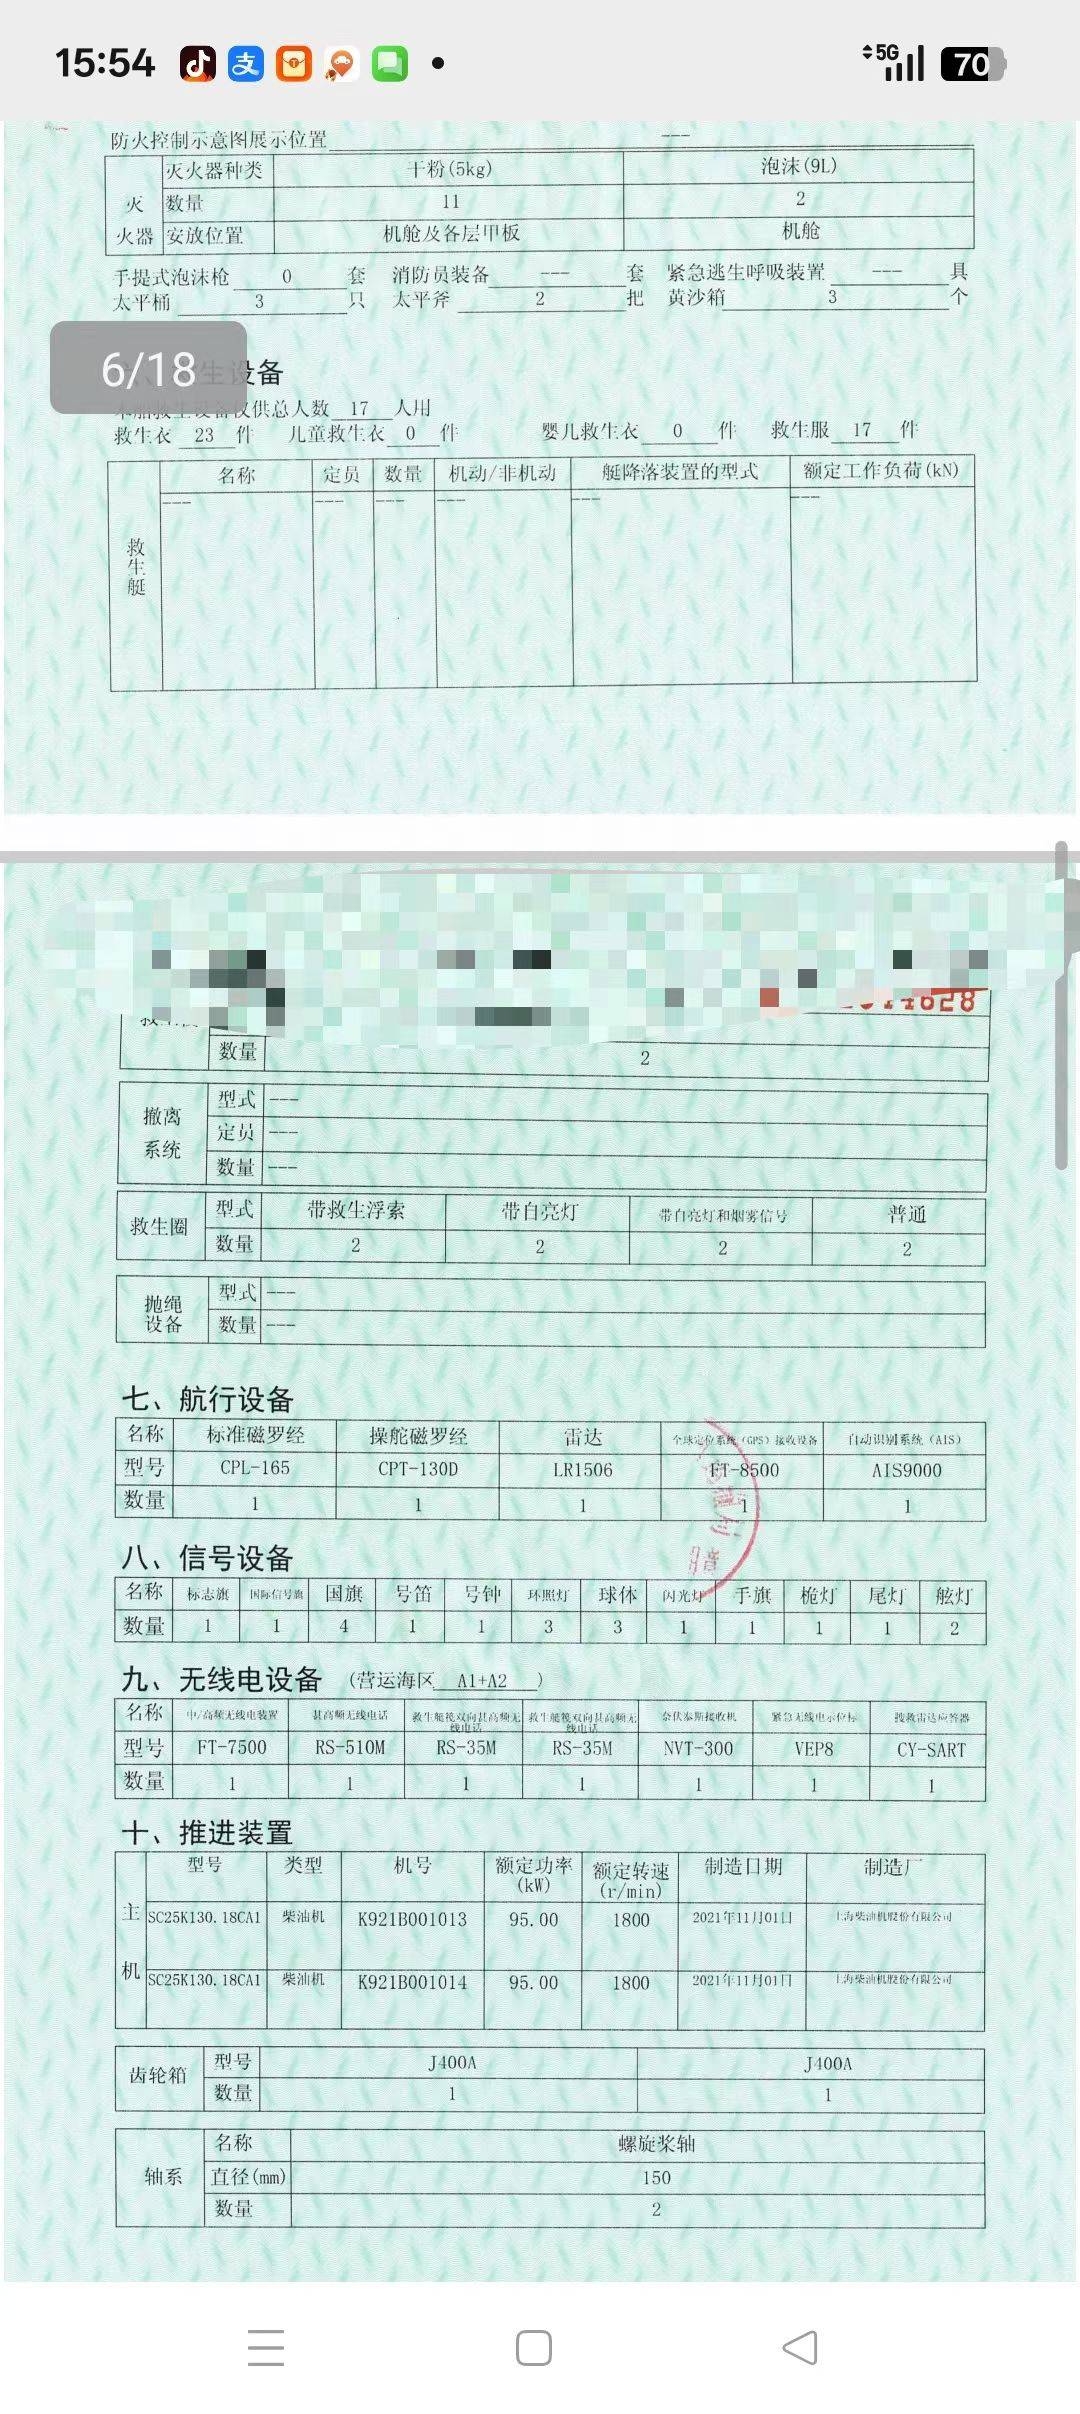 15:54 5G 70
防火控制示意图展示位置 ---
灭火器 灭火器种类 干粉(5kg) 泡沫(9L)
数量 11 2
安放位置 机舱及各层甲板 机舱
手提式泡沫枪 0 套 消防员装备 --- 套 紧急逃生呼吸装置 --- 具
太平桶 3 只 太平斧 2 把 黄沙箱 3 个
6/18
生设备
供总人数 17 人用
救生衣 23 件 儿童救生衣 0 件 婴儿救生衣 0 件 救生服 17 件
救生艇 名称 定员 数量 机动/非机动 艇降落装置的型式 额定工作负荷(kN)
--- --- --- --- --- ---
14628
数量 2
撤离系统 型式 ---
定员 ---
数量 ---
救生圈 型式 带救生浮索 带自亮灯 带自亮灯和烟雾信号 普通
数量 2 2 2 2
抛绳设备 型式 ---
数量 ---
七、航行设备
名称 标准磁罗经 操舵磁罗经 雷达 全球定位系统(GPS)接收设备 自动识别系统(AIS)
型号 CPL-165 CPT-130D LR1506 FT-8500 AIS9000
数量 1 1 1 1 1
八、信号设备
名称 标志旗 国际信号旗 国旗 号笛 号钟 环照灯 球体 闪光灯 手旗 桅灯 尾灯 舷灯
数量 1 1 4 1 1 3 3 1 1 1 1 2
九、无线电设备 (营运海区 A1+A2 )
名称 中/高频无线电装置 甚高频无线电话 救生艇筏双向甚高频无线电话 救生艇筏双向甚高频无线电话 奈伏泰斯接收机 紧急无线电示位标 搜救雷达应答器
型号 FT-7500 RS-510M RS-35M RS-35M NVT-300 VEP8 CY-SART
数量 1 1 1 1 1 1 1
十、推进装置
主机 型号 类型 机号 额定功率(kW) 额定转速(r/min) 制造日期 制造厂
SC25K130.18CA1 柴油机 K921B001013 95.00 1800 2021年11月01日 上海柴油机股份有限公司
SC25K130.18CA1 柴油机 K921B001014 95.00 1800 2021年11月01日 上海柴油机股份有限公司
齿轮箱 型号 J400A J400A
数量 1 1
轴系 名称 螺旋桨轴
直径(mm) 150
数量 2